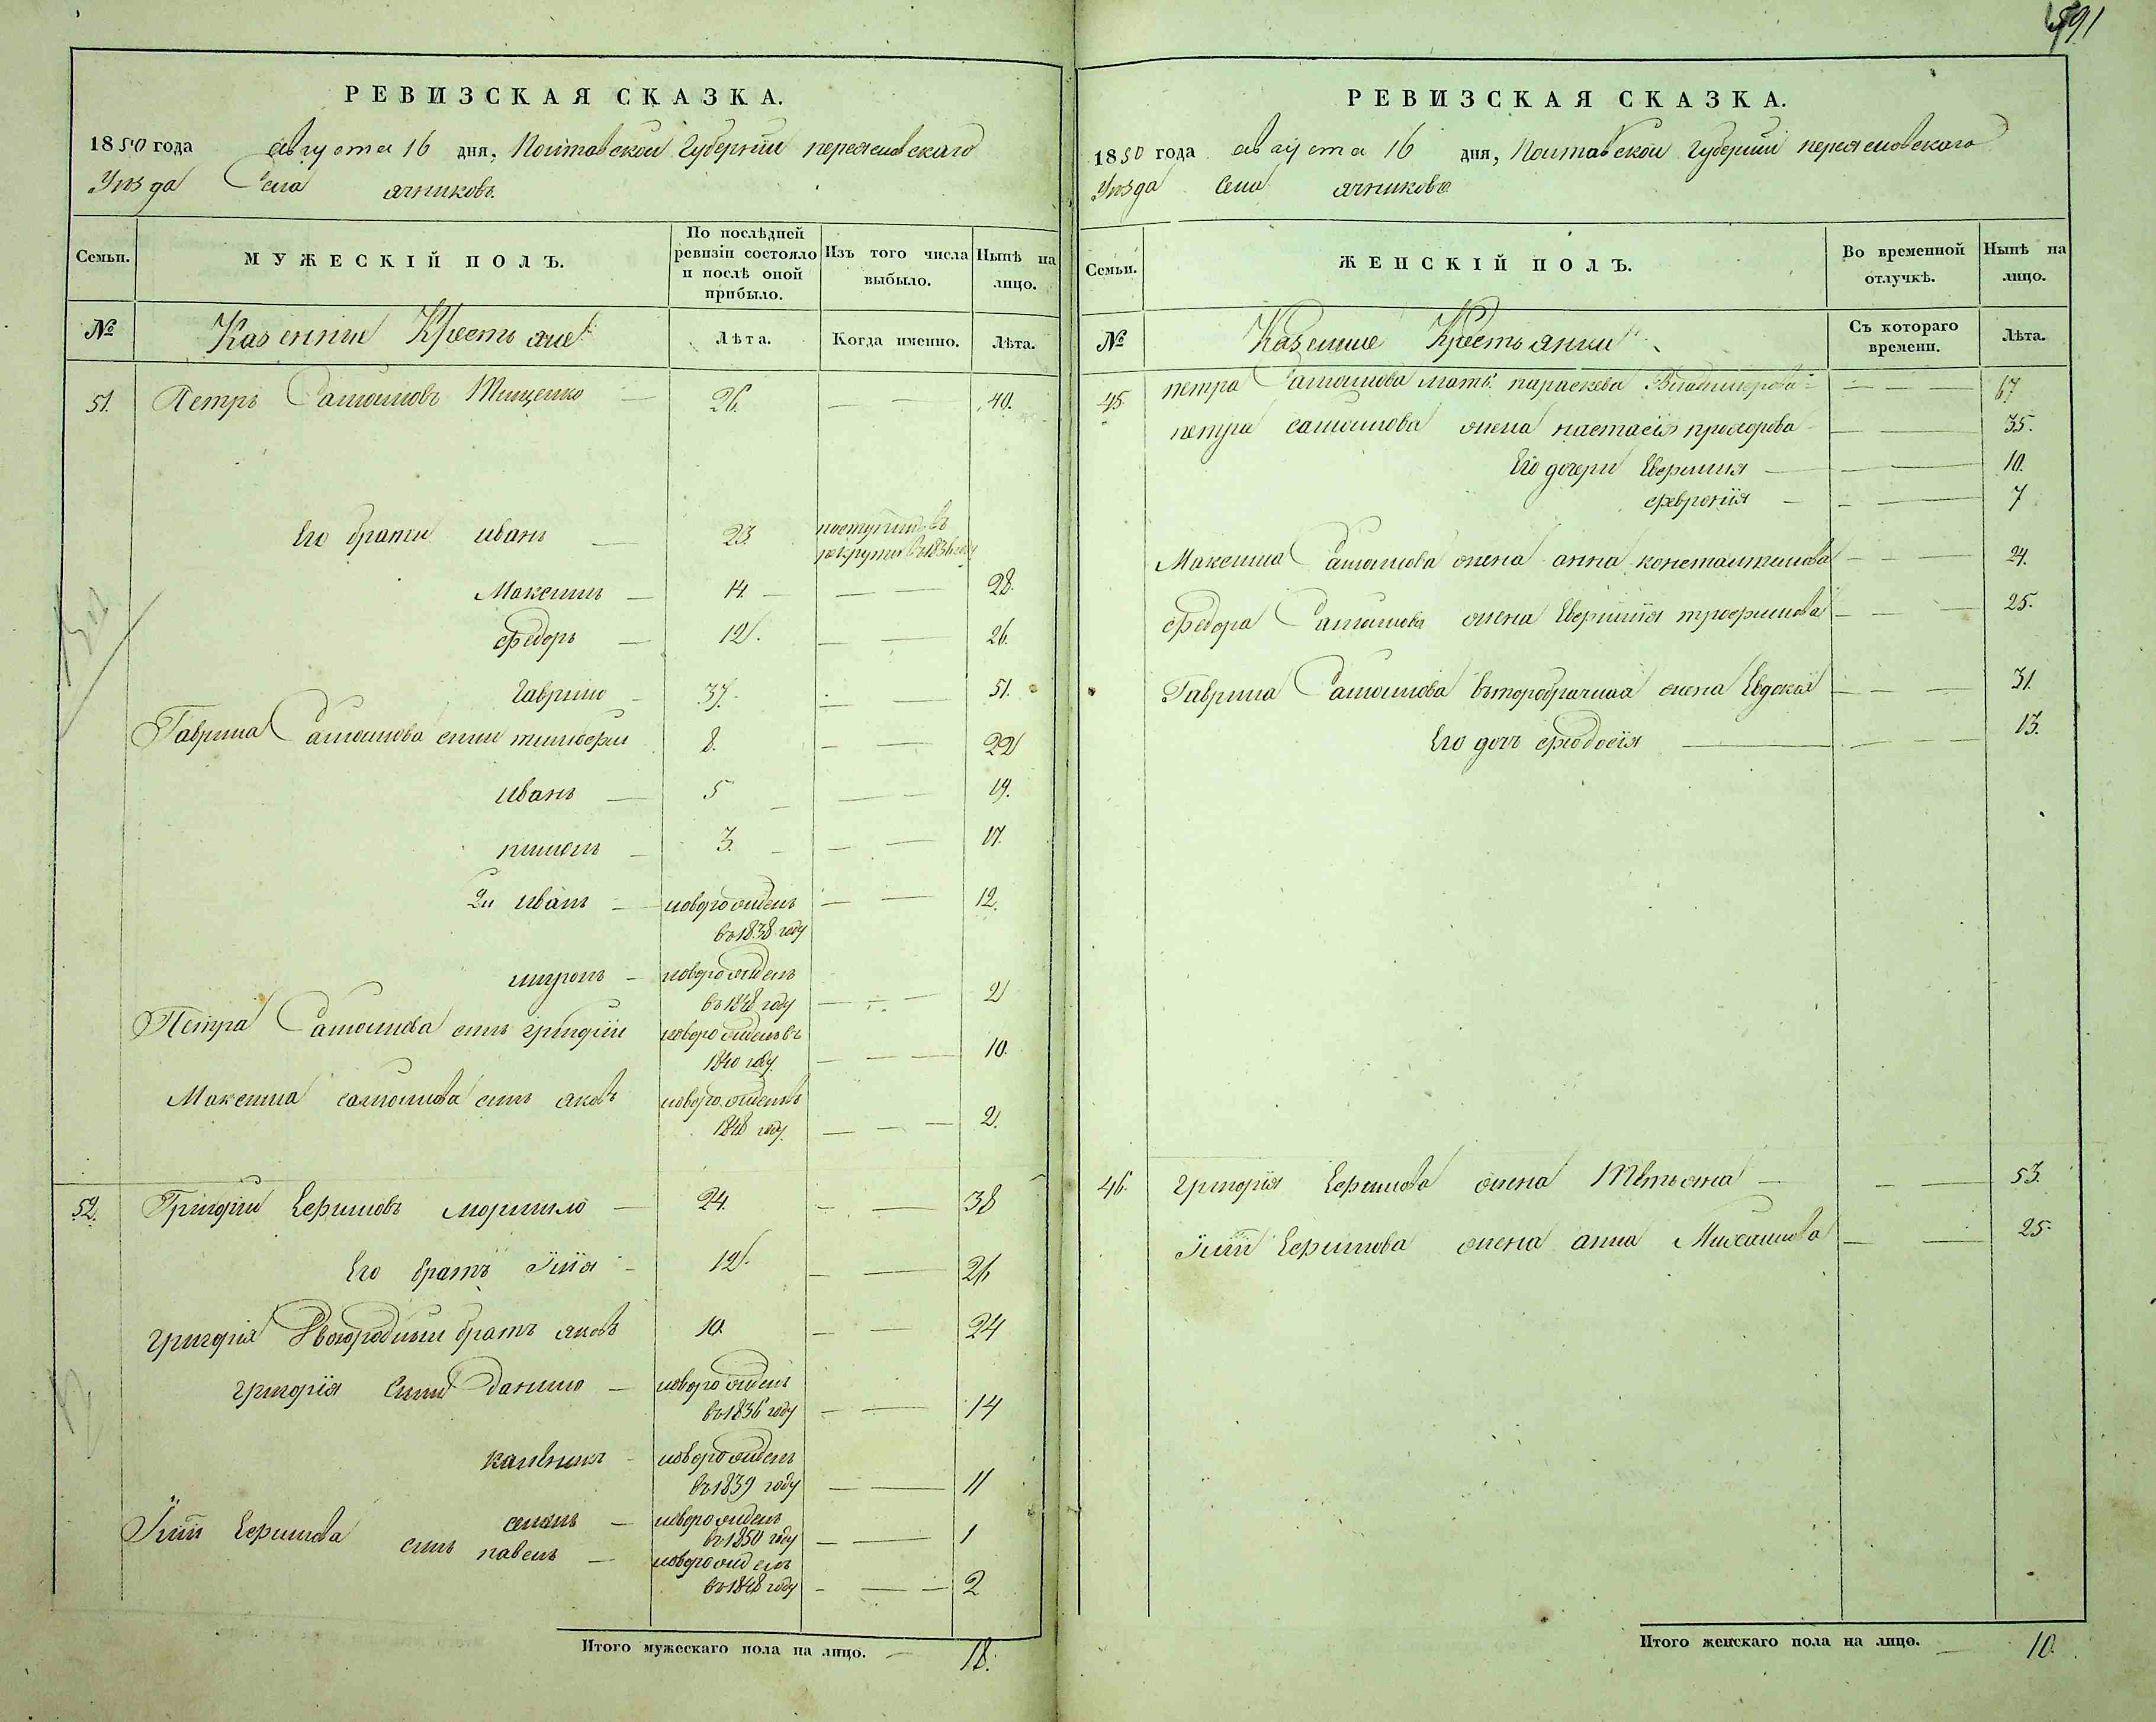 591
РЕВИЗСКАЯ СКАЗКА.
1850 года августа 16 дня, Полтавской Губернии переяславского
Уезда Села ячниковъ.
Семьи.
МУЖЕСКІЙ ПОЛЪ.
По послѣдней ревизіи состояло и послѣ оной прибыло.
Изъ того числа выбыло.
Нынѣ на лицо.
№
Казенние Крестьяне
Лѣта.
Когда именно.
Лѣта.
51. Петръ Самоиловъ Тищенко — 26. — — 40.
Его брати иванъ — 23. поступилъ въ
рекруты въ 1836 году
Максимъ — 14. — — — 28.
Федоръ — 12. — — 26.
Гаврило — 37. — — 51.
Гаврила Самоилова сини тимофеи 8. — — 22
иванъ — 5 — — — 19.
пименъ — 3. — — — 17.
2й иванъ — новорожденъ — — 12.
въ 1838 году
миронъ — новорожденъ
въ 1848 году — — — 2
Петра Самоилова синъ григорїи новорожденъ въ
1840 году — — — 10.
Максима самоилова синъ яковъ новорожденъ
1848 году. — — — 2.
52. Григорїи Ефимовъ моргило — 24. — — 38
Его братъ Илїя — 12. — — 26
григорїя Двоюродный братъ яковъ 10. — — 24
григорїя Сини Данило — новорожденъ
въ 1836 году — — 14
калѣникъ — новорожденъ
въ 1839 году — — 11
семенъ — новорожденъ
въ 1850 году — — 1
Илїи Ефимова синъ павелъ — новорожденъ
въ 1848 году — — — 2
Итого мужескаго пола на лицо. — 18.
РЕВИЗСКАЯ СКАЗКА.
1850 года августа 16 дня, Полтавской Губерніи переяславскаго
Уезда Села ячникова
Семьи.
ЖЕНСКІЙ ПОЛЪ.
Во временной отлучкѣ.
Нынѣ на лицо.
№
Казенние Крестьянки
Съ котораго времени.
Лѣта.
45. петра Самоилова мать параскева Владимерова — — — 67
петра самоилова жена настасія прохорова — — 35.
Его дочери Ефимия — — — 10.
феврония — — — 7
Максима Самоилова жена анна константинова — — — 24.
Федора Самоилова жена Ефимїя трофимова — — — 25.
Гаврила Самоилова второбрачная жена Евдокія — — — 31.
Его дочъ феодосїя — — — 13.
46. григорїя Ефимова жена Тѣтяна — — — 53.
Илїи Ефимова жена анна Михаилова — — 25.
Итого женскаго пола на лицо. — 10.